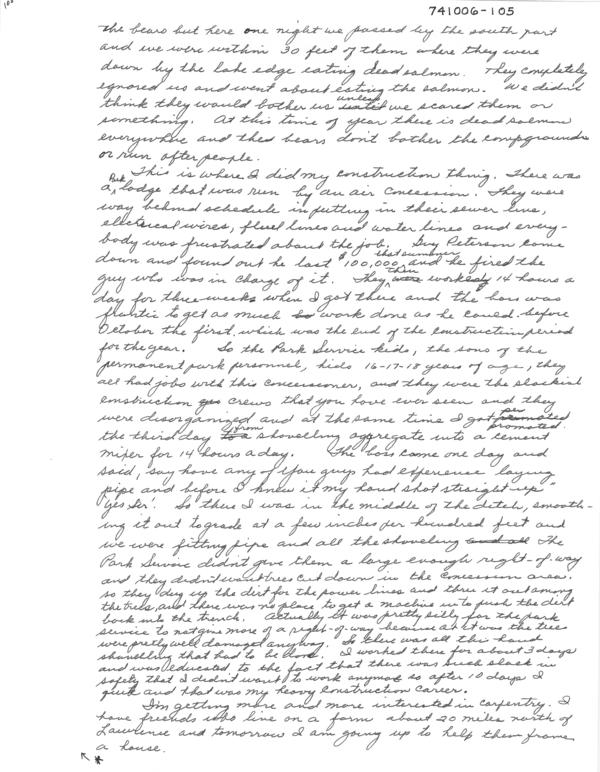 741006-105
the bears but here one night we passed by the south part
and we were within 30 feet of them where they were
down by the lake edge eating dead salmon. They completely
egnored us and went about eating the salmon. We didn't
think they would bother us unless we scared them or
something. At this time of year there is dead salmon
everywhere and these bears don't bother the campgrounds
or run after people.
This is where I did my construction thing. There was
a Park lodge that was run by an air concession. They were
way behind schedule in putting in their sewer line,
electrical wires, fluel lines and water lines and every-
body was frustrated about the job. Guy Peterson came
down and found out he lost $100,000 that summer and he fired the
guy who was in charge of it. They then worked 14 hours a
day for three weeks when I got there and the boss was
frantic to get as much work done as he could before
October the first, which was the end of the construction period
for the year. So the Park Service kids, the sons of the
permanent park personnel, kids 16-17-18 years of age, they
all had jobs with this concessioner, and they were the slackist
construction crews that you have ever seen and they
were disorganized and at the same time I got promoted
the third day from a shoveling aggregate into a cement
mixer for 14 hours a day. The boss came one day and
said, say have any of you guys had experience laying
pipe and before I knew it my hand shot straight up "
yes sir." So there I was in the middle of the ditch, smooth-
ing it out to grade at a few inches per hundred feet and
we were fitting pipe and all the shoveling. The
Park Service didn't give them a large enough right-of-way
and they didn't want trees cut down in the concession area.
so they dug up the dirt for the power lines and threw it out among
the trees, and there was no place to get a machine in to push the dirt
back into the trench. Actually it was pretty silly for the park
service to not give more of a right-of-way because as it was the trees
were pretty well damaged anyway. So there was all this hand
shovelling that had to be done. I worked there for about 3 days
and was educated to the fact that there was such slack in
safety that I didn't want to work anymore so after 10 days I
quit and that was my heavy construction career.
I'm getting more and more interested in carpentry. I
have friends who live on a farm about 20 miles north of
Lawrence and tomorrow I am going up to help them frame
a house.